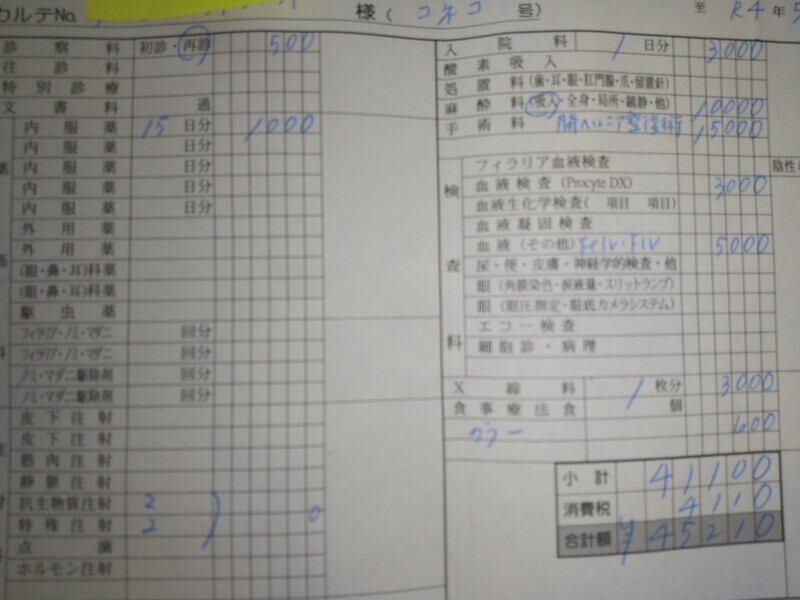 カルテNo. 様(コネコ号) 至 R4年5
診察料 初診・再診 500
往診料
特別診療
文書料 通
内服薬 15日分 1000
内服薬 日分
内服薬 日分
内服薬 日分
内服薬 日分
外用薬
外用薬
(眼・鼻・耳)科薬
(眼・鼻・耳)科薬
駆虫薬
フィラリア・ノミ・マダニ 回分
フィラリア・ノミ・マダニ 回分
ノミ・マダニ駆除剤 回分
ノミ・マダニ駆除剤 回分
皮下注射
皮下注射
筋肉注射
静脈注射
抗生物質注射 2
特殊注射 2 0
点滴
ホルモン注射
入院料 1日分 3000
酸素吸入
処置料(歯・耳・眼・肛門腺・爪・留置針)
麻酔料(吸入・全身・局所・鎮静・他) 10000
手術料 臍ヘルニア整復術 15000
検査料
フィラリア血液検査 陰性
血液検査(Procyte DX) 3000
血液生化学検査( 項目 項目)
血液凝固検査
血液(その他)Felv・FIV 5000
尿・便・皮膚・神経学的検査・他
眼(角膜染色・涙液量・スリットランプ)
眼(眼圧測定・眼底カメラシステム)
エコー検査
細胞診・病理
X線料 1枚分 3000
食事療法食 個
カラー 600
小計 41100
消費税 4110
合計額 ¥45210